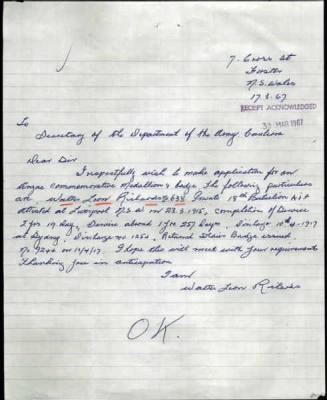 7. Cross St
Forster
N.S. Wales
17.3.67
RECEIPT ACKNOWLEDGED
30 MAR 1967
To
Secretary of the Department of the Army Canberra
Dear Sir
I respectfully wish to make application for an
Anzac commemorative Medallion & badge The following particulars
are Walter Leon Richards 2638 Private 18th Battalion A.I.F
attested at Liverpool N.S.W on 1915, completion of Service
2 yrs 19 days, Service abroad 257 Days. Discharge 10th-4-1917
at Sydney. Discharge no 1250. Returned Soldier Badge issued
on 11/4/17. I hope this will meet with your requirements
Thanking you in anticipation
I am
Walter Leon Richards
OK.